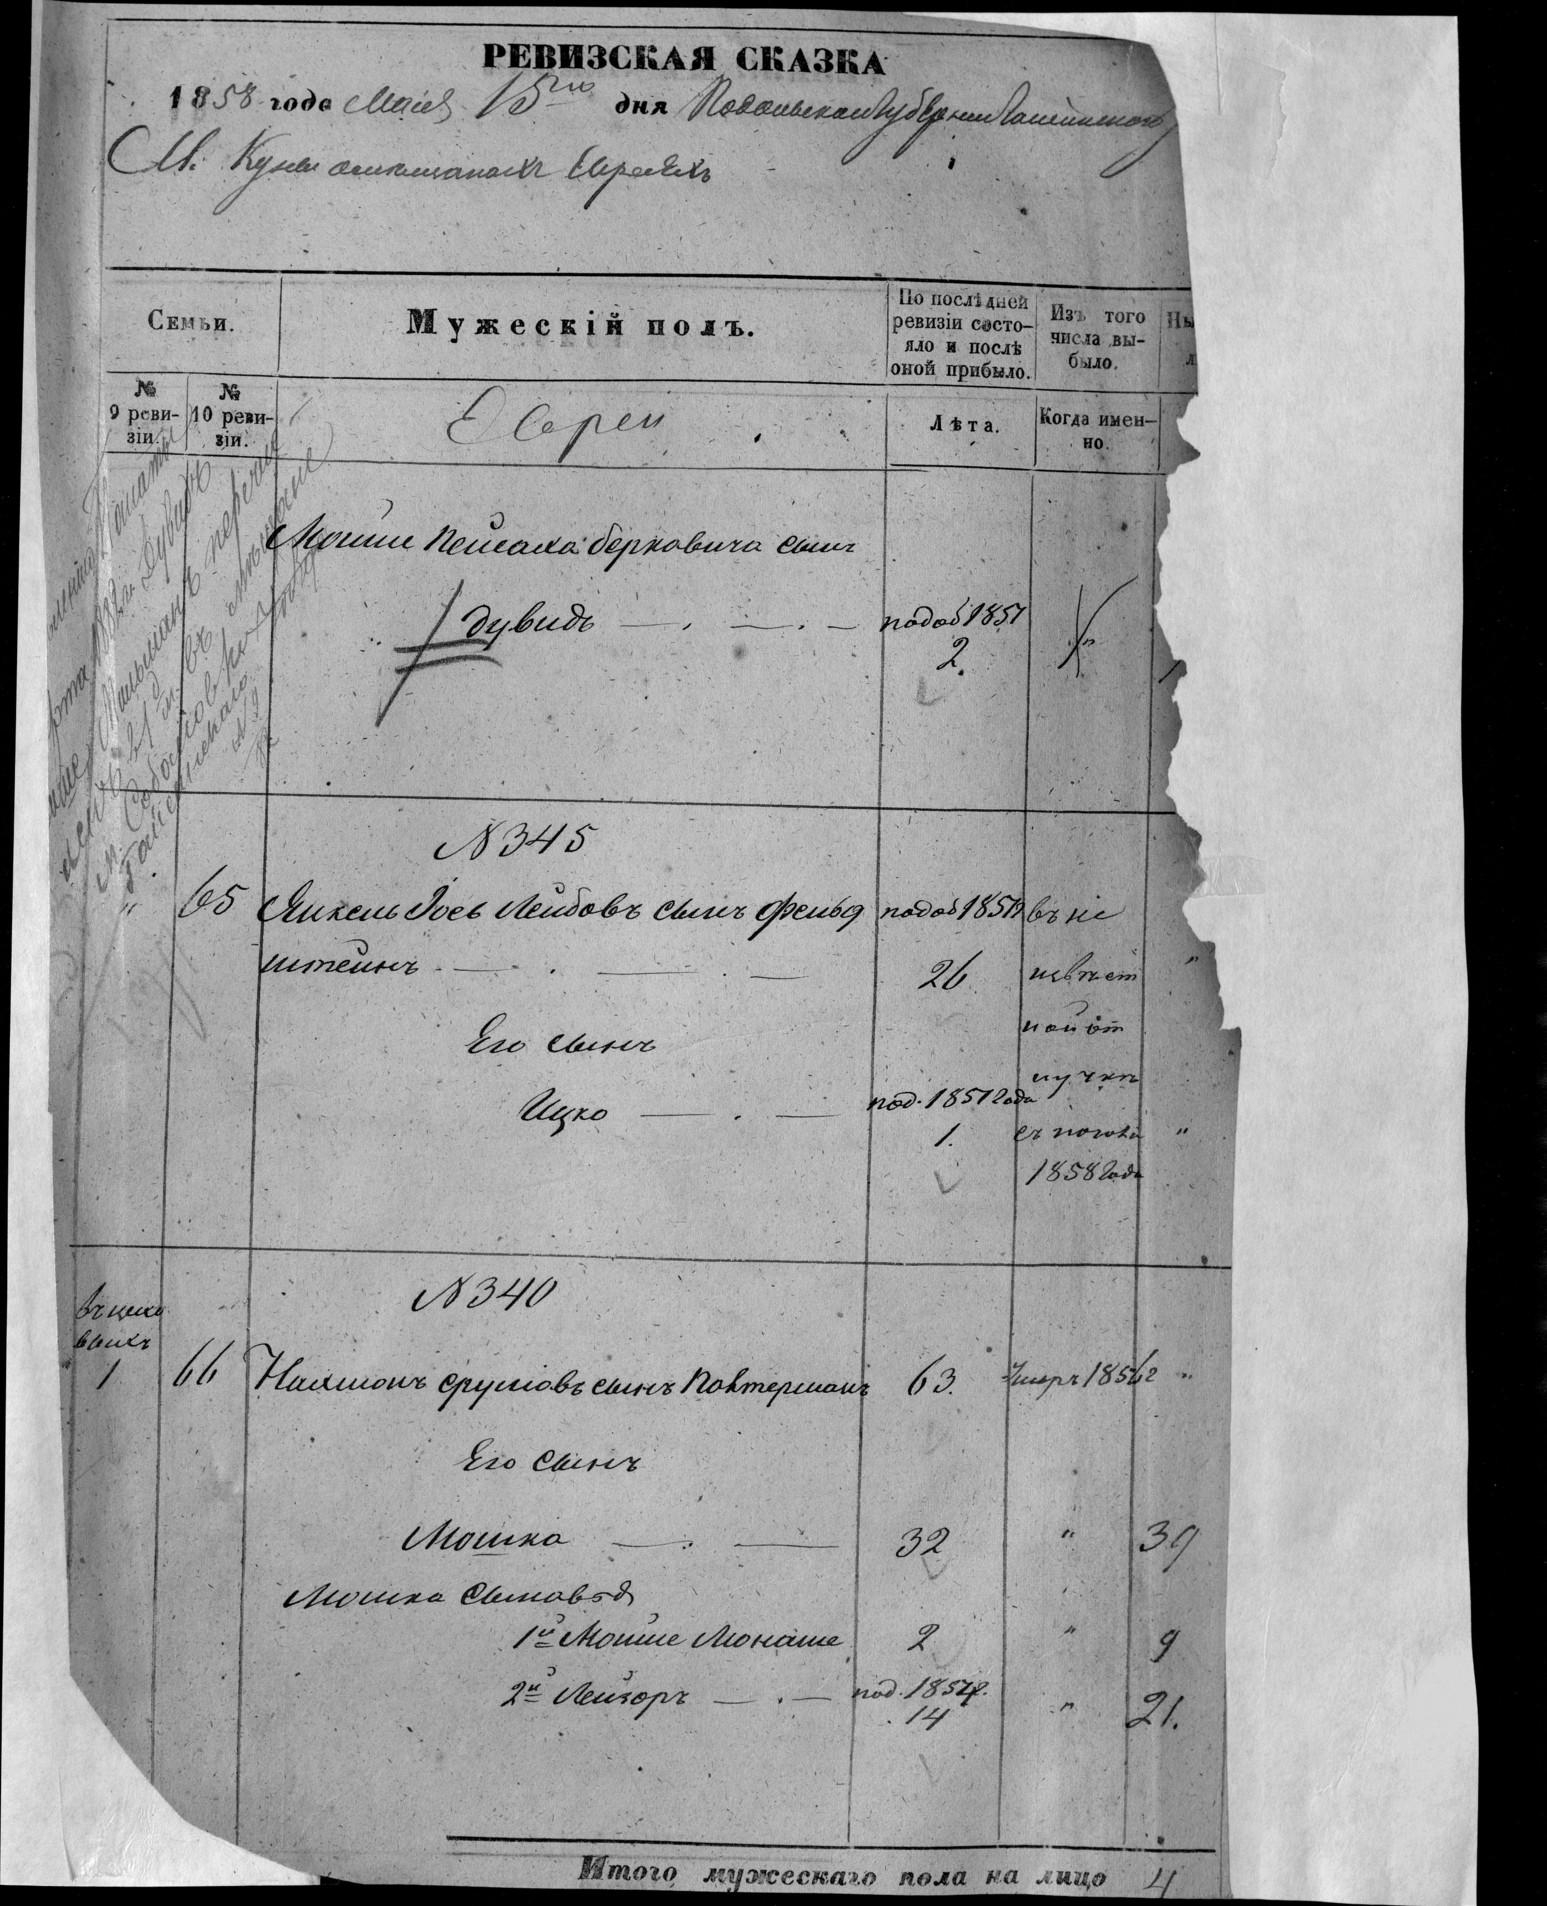 РЕВИЗСКАЯ СКАЗКА
1858 года Маія 15го дня Подольской Губерніи Гайсинскаго
М. Куны о мещанахъ Евреяхъ
Семьи.
Мужескій полъ.
По послѣдней ревизіи состо-
яло и послѣ
оной прибыло.
Изъ того
числа вы-
было.
№
9 реви-
зіи.
№
10 реви-
зіи.
Евреи
Лѣта.
Когда имен-
но.
Мошш Пейсаха Берковича сынъ
Дувидъ
подоб 1851
2.
N 345
" 65 Янкель Іось Лейбовъ сынъ Фельд
штейнъ
подоб 1851
26
въ не
извѣст
ной от
лучкѣ
съ
1858 года
"
Его сынъ
Ицко
под. 1851 года
1.
"
N 340
въ цехо
выхъ
1 66 Нахманъ Сруліовъ сынъ Полтерманъ 63. Умеръ 1856 "
Его сынъ
Мошко 32 " 39
Мошка сыновья
1й Мойше Монаше 2 " 9
2й Лейзоръ под. 1851
14 " 21.
Итого мужескаго пола на лицо 4